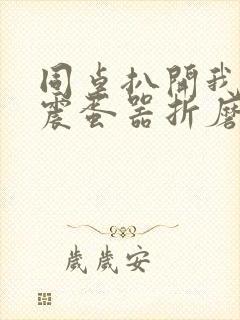 同桌扒開我
震蛋器折磨
歲歲安